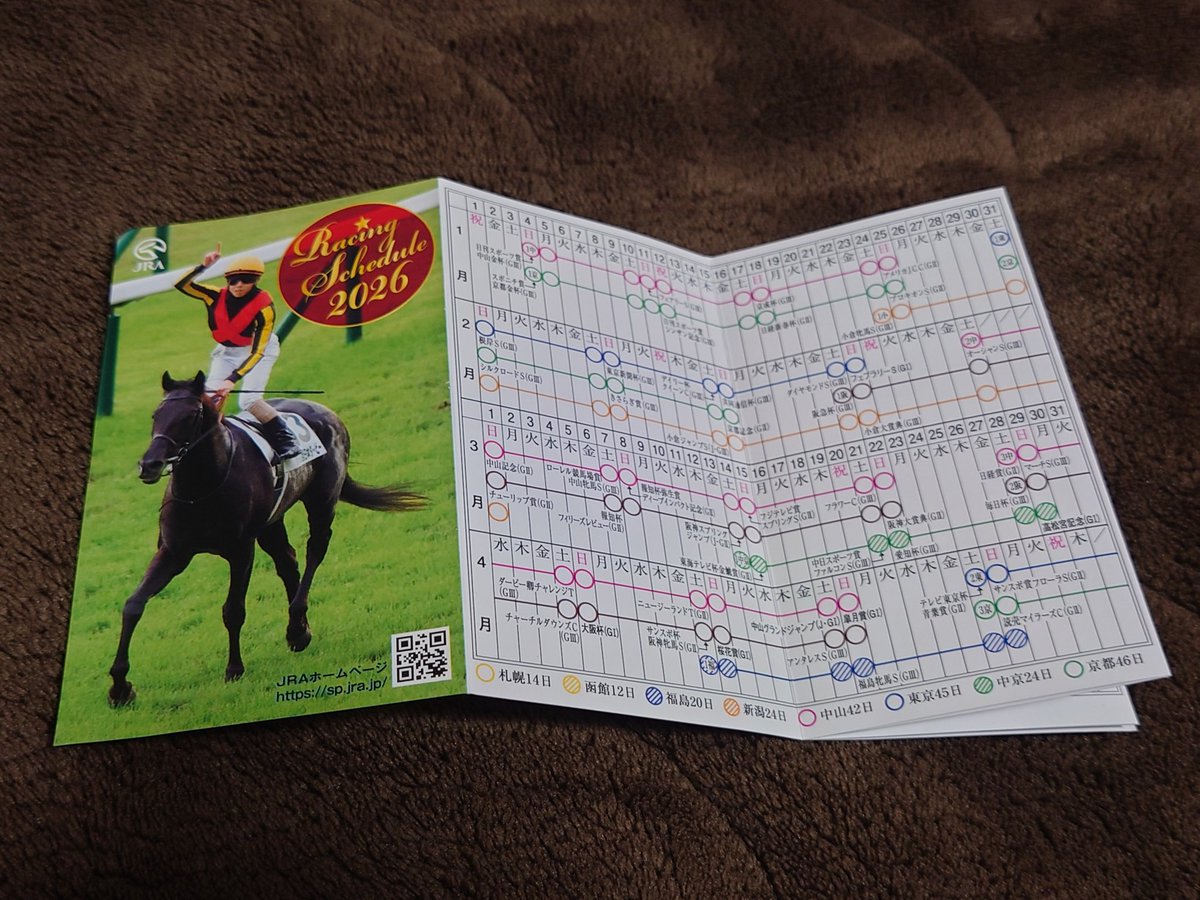 JRA
Racing
Schedule
2026
JRAホームページ
https://sp.jra.jp/
1 2 3 4 5 6 7 8 9 10 11 12 13 14 15 16 17 18 19 20 21 22 23 24 25 26 27 28 29 30 31
1月
祝 金 土 日 月 火 水 木 金 土 日 祝 火 水 木 金 土 日 月 火 水 木 金 土 日 月 火 水 木 金 土
日刊スポーツ賞
中山金杯(GIII)
スポニチ賞
京都金杯(GIII)
フェアリーS(GIII)
日刊スポーツ賞
シンザン記念(GIII)
京成杯(GIII)
日経新春杯(GII)
アメリカJCC(GII)
プロキオンS(GII)
小倉牝馬S(GIII)
2月
日 月 火 水 木 金 土 日 月 火 祝 木 金 土 日 月 火 水 木 金 土 日 祝 火 水 木 金 土
根岸S(GIII)
シルクロードS(GIII)
東京新聞杯(GIII)
きさらぎ賞(GIII)
デイリー杯
クイーンC(GIII)
共同通信杯(GIII)
京都記念(GII)
小倉ジャンプS(J・GIII)
ダイヤモンドS(GIII)
フェブラリーS(GI)
阪急杯(GIII)
小倉大賞典(GIII)
オーシャンS(GIII)
1 2 3 4 5 6 7 8 9 10 11 12 13 14 15 16 17 18 19 20 21 22 23 24 25 26 27 28 29 30 31
3月
日 月 火 水 木 金 土 日 月 火 水 木 金 土 日 月 火 水 木 祝 土 日 月 火 水 木 金 土 日 月 火
中山記念(GII)
チューリップ賞(GII)
ローレル競馬場賞
中山牝馬S(GIII)
報知杯弥生賞
ディープインパクト記念(GII)
報知杯
フィリーズレビュー(GII)
阪神スプリング
ジャンプ(J・GII)
フジテレビ賞
スプリングS(GII)
東海テレビ杯・金鯱賞(GII)
フラワーC(GIII)
阪神大賞典(GII)
中日スポーツ賞
ファルコンS(GIII)
愛知杯(GIII)
日経賞(GII)
マーチS(GIII)
毎日杯(GIII)
高松宮記念(GI)
4月
水 木 金 土 日 月 火 水 木 金 土 日 月 火 水 木 金 土 日 月 火 水 木 金 土 日 月 火 祝 木
ダービー卿チャレンジT
(GIII)
チャーチルダウンズC
(GIII)
大阪杯(GI)
ニュージーランドT(GII)
サンスポ杯
阪神牝馬S(GII)
桜花賞(GI)
中山グランドジャンプ(J・GI)
皐月賞(GI)
アンタレスS(GIII)
福島牝馬S(GIII)
テレビ東京杯
青葉賞(GII)
サンスポ賞フローラS(GII)
読売マイラーズC(GII)
札幌14日 函館12日 福島20日 新潟24日 中山42日 東京45日 中京24日 京都46日